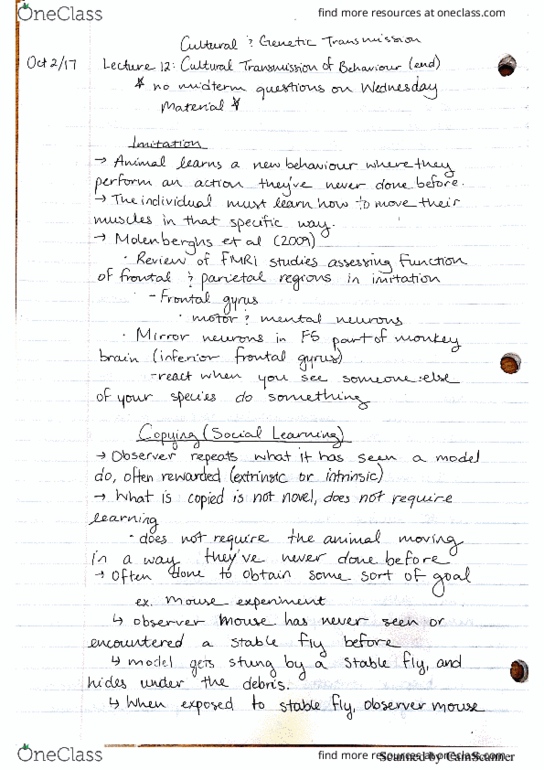 OneClass
find more resources at oneclass.com
Cultural & Genetic Transmission
Oct 2/17
Lecture 12: Cultural Transmission of Behaviour (end)
* no midterm questions on Wednesday
Material *
Imitation
→ Animal learns a new behaviour where they
perform an action they've never done before.
→ The individual must learn how to move their
muscles in that specific way.
→ Molenberghs et al (2009)
· Review of fMRI studies assessing function
of frontal & parietal regions in imitation
- Frontal gyrus
· motor & mental neurons
· Mirror neurons in F5 part of monkey
brain (inferior frontal gyrus)
- react when you see someone else
of your species do something
Copying (Social Learning)
→ Observer repeats what it has seen a model
do, often rewarded (extrinsic or intrinsic)
→ What is copied is not novel, does not require
learning
· does not require the animal moving
in a way they've never done before
→ Often done to obtain some sort of goal
ex. mouse experiment
↳ observer mouse has never seen or
encountered a stable fly before
↳ model gets stung by a stable fly, and
hides under the debris.
↳ When exposed to stable fly, observer mouse
OneClass
find more resources at oneclass.com
Scanned by CamScanner